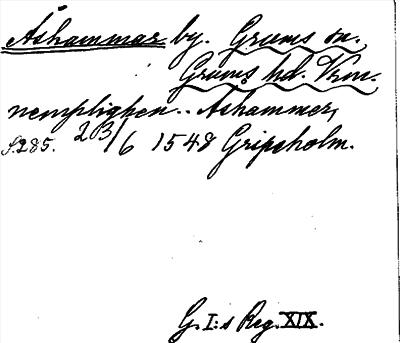 Åshammar by. Grums sn.
Grums hd. Vrm.
nemplighen.. Ashammer,
S. 285. 23/6 1548 Gripsholm.
G. I:s Reg. XIX.